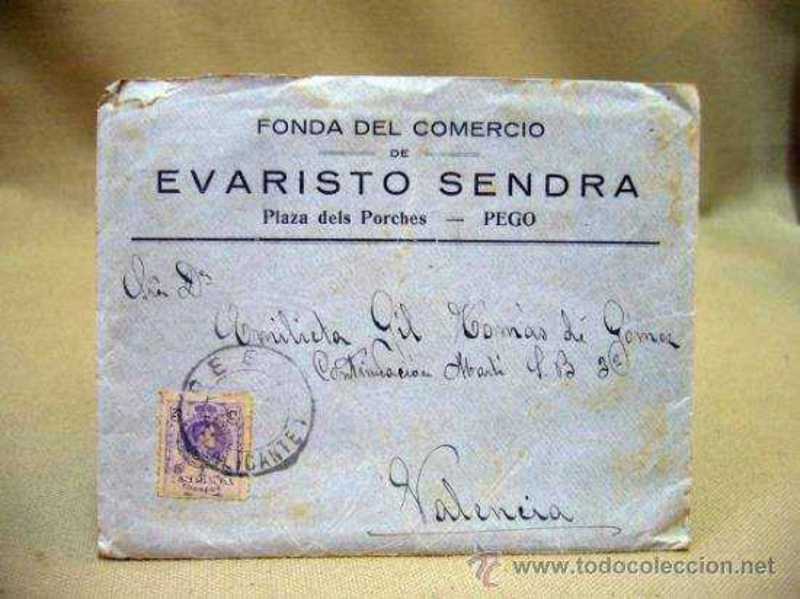 FONDA DEL COMERCIO
DE
EVARISTO SENDRA
Plaza dels Porches — PEGO
Sra Dª
Emilieta Gil Tomás de Gómez
Continuación Martí L. B 3ª
ALICANTE
Valencia
www.todocoleccion.net